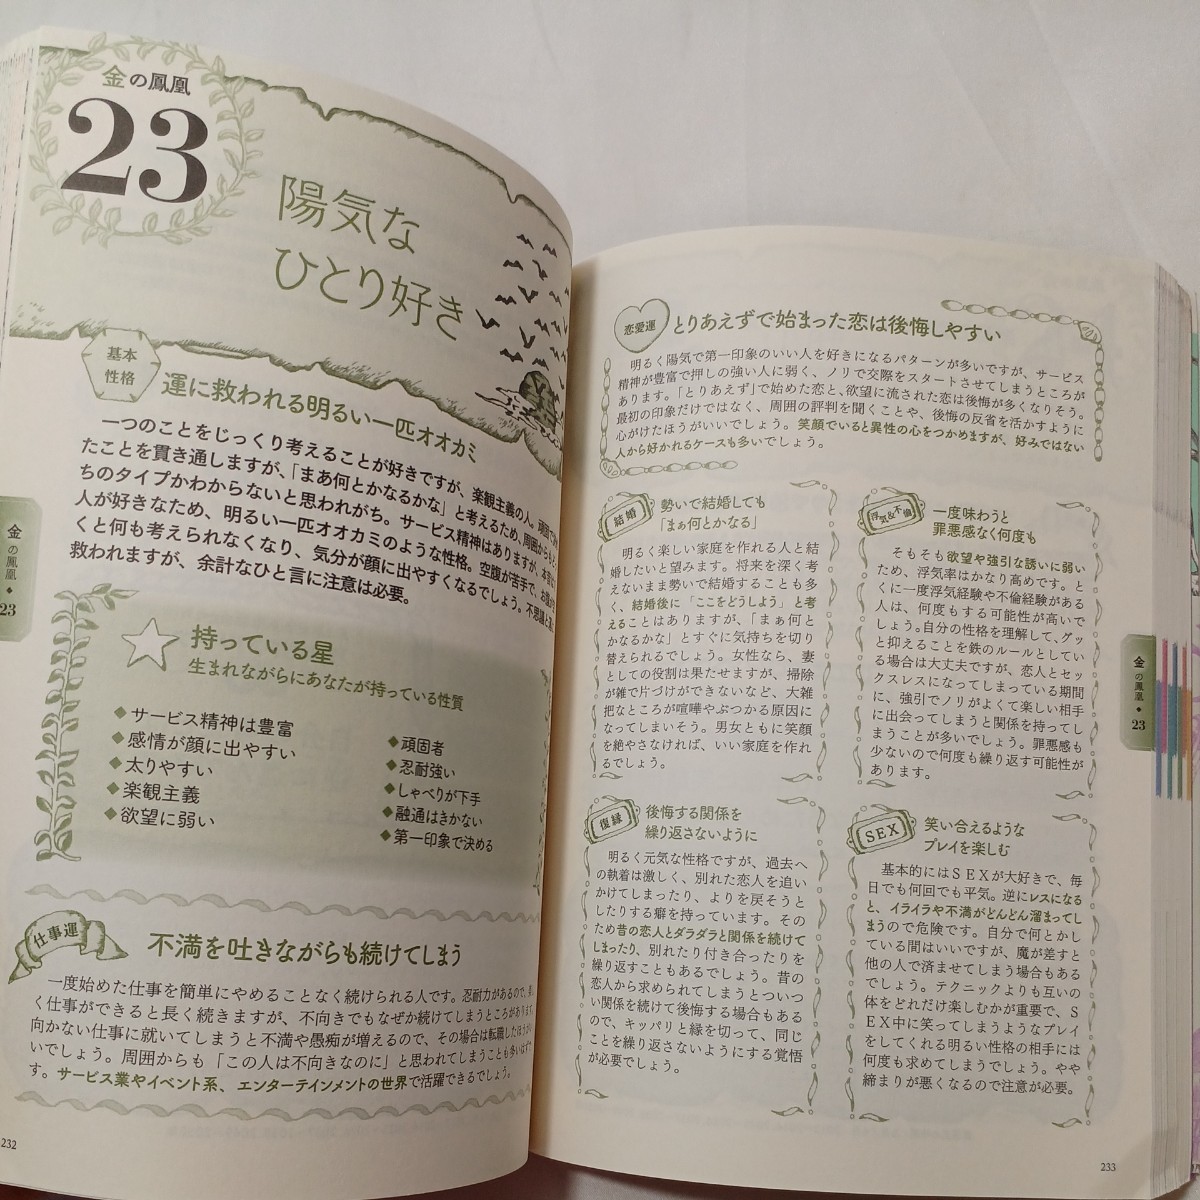 金の鳳凰
23
陽気な
ひとり好き
基本
性格
運に救われる明るい一匹オオカミ
一つのことをじっくり考えることが好きですが、楽観主義の人。頑固で
たことを貫き通しますが、「まあ何とかなるかな」と考えるため、周囲から
ちのタイプかわからないと思われがち。サービス精神はありますが、本音は
人が好きなため、明るい一匹オオカミのような性格。空腹が苦手で、お腹が
くと何も考えられなくなり、気分が顔に出やすくなるでしょう。不思議と運に
救われますが、余計なひと言に注意は必要。
持っている星
生まれながらにあなたが持っている性質
◆サービス精神は豊富
◆感情が顔に出やすい
◆太りやすい
◆楽観主義
◆欲望に弱い
◆頑固者
◆忍耐強い
◆しゃべりが下手
◆融通はきかない
◆第一印象で決める
仕事運
不満を吐きながらも続けてしまう
一度始めた仕事を簡単にやめることなく続けられる人です。忍耐力があるので、
く仕事ができると長く続きますが、不向きでもなぜか続けてしまうところがあります。
向かない仕事に就いてしまうと不満や愚痴が増えるので、その場合は転職したほうが
いでしょう。周囲からも「この人は不向きなのに」と思われてしまうことも多いはず
す。サービス業やイベント系、エンターテインメントの世界で活躍できるでしょう。
232
金の鳳凰◆23
恋愛運
とりあえずで始まった恋は後悔しやすい
明るく陽気で第一印象のいい人を好きになるパターンが多いですが、サービス
精神が豊富で押しの強い人に弱く、ノリで交際をスタートさせてしまうところが
あります。「とりあえず」で始めた恋と、欲望に流された恋は後悔が多くなりそう。
最初の印象だけではなく、周囲の評判を聞くことや、後悔の反省を活かすように
心がけたほうがいいでしょう。笑顔でいると異性の心をつかめますが、好みではない
人から好かれるケースも多いでしょう。
結婚
勢いで結婚しても
「まぁ何とかなる」
明るく楽しい家庭を作れる人と結
婚したいと望みます。将来を深く考
えないまま勢いで結婚することも多
く、結婚後に「ここをどうしよう」と考
えることはありますが、「まぁ何と
かなるかな」とすぐに気持ちを切り
替えられるでしょう。女性なら、妻
としての役割は果たせますが、掃除
が雑で片づけができないなど、大雑
把なところが喧嘩やぶつかる原因に
なってしまいそう。男女ともに笑顔
を絶やさなければ、いい家庭を作れ
るでしょう。
浮気&不倫
一度味わうと
罪悪感なく何度も
そもそも欲望や強引な誘いに弱い
ため、浮気率はかなり高めです。と
くに一度浮気経験や不倫経験がある
人は、何度もする可能性が高いで
しょう。自分の性格を理解して、グッ
と抑えることを鉄のルールとしてい
る場合は大丈夫ですが、恋人とセッ
クスレスになってしまっている期間
に、強引でノリがよくて楽しい相手
に出会ってしまうと関係を持ってし
まうことが多いでしょう。罪悪感も
少ないので何度も繰り返す可能性が
あります。
復縁
後悔する関係を
繰り返さないように
明るく元気な性格ですが、過去へ
の執着は激しく、別れた恋人を追い
かけてしまったり、よりを戻そうと
したりする癖を持っています。その
ため昔の恋人とダラダラと関係を続けて
しまったり、別れたり付き合ったりを
繰り返すこともあるでしょう。昔の
恋人から求められてしまうとついつ
い関係を続けて後悔する場合もある
ので、キッパリと縁を切って、同じ
ことを繰り返さないようにする覚悟
が必要でしょう。
SEX
笑い合えるような
プレイを楽しむ
基本的にはＳＥＸが大好きで、毎
日でも何回でも平気。逆にレスになる
と、イライラや不満がどんどん溜まってし
まうので危険です。自分で何とかし
ている間はいいですが、魔が差すと
他の人で済ませてしまう場合もある
でしょう。テクニックよりも互いの
体をどれだけ楽しむかが重要で、Ｓ
ＥＸ中に笑ってしまうようなプレイ
をしてくれる明るい性格の相手には
何度も求めてしまうでしょう。やや
締まりが悪くなるので注意が必要。
金の鳳凰◆23
233